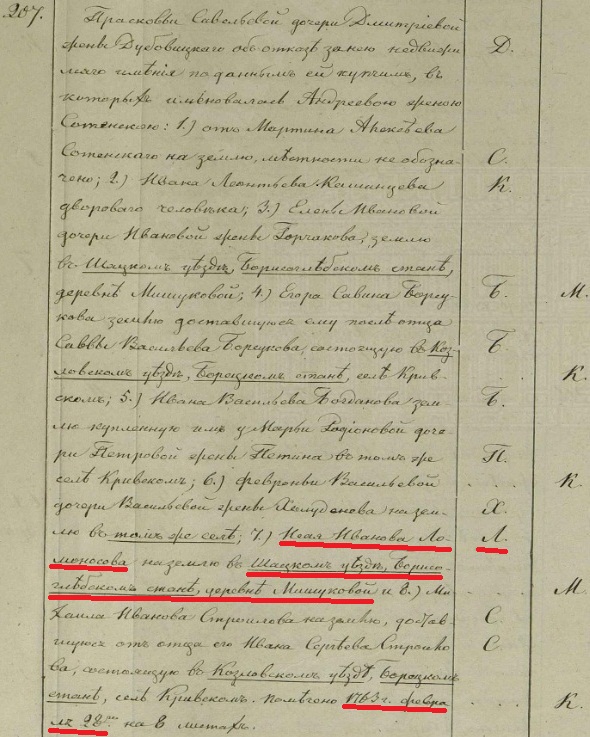 207.
Прасковьи Савельевой дочери Дмитріевой Д.
жены Дубовицкаго объ отказѣ за нею недвижи
маго имѣнія по даннымъ ей купчимъ, въ
которыхъ именовалась Андреевою женою
Сотенскою: 1.) отъ Мартина Алексѣева
Сотенскаго на землю, мѣстности не обозна- С.
чено; 2.) Ивана Леонтьева Камынцева К.
двороваго человѣка; 3.) Елены Ивановой
дочери Ивановой жены Горчакова, землю
въ Шацкомъ уѣздѣ, Борисоглѣбскомъ станѣ,
деревнѣ Мишуковой; 4.) Егора Савина Борсу- Б. М.
кова землю доставшуюся ему послѣ отца
Саввы Васильева Борсукова, состоящую въ Коз- Б.
ловскомъ уѣздѣ, Борецкомъ станѣ, селѣ Крив- К.
скомъ; 5.) Ивана Васильева Богданова зем- Б.
лю купленную имъ у Марьи Родіоновой доче-
ри Петровой жены Петина въ томъ же П.
селѣ Кривскомъ; 6.) Февроньи Васильевой . . . . К.
дочери Васильевой жены на зем- Х.
лю въ томъ же селѣ; 7.) Исая Иванова Ло- Л.
моносова на землю въ Шацкомъ уѣздѣ, Борисо-
глѣбскомъ станѣ, деревнѣ Мишуковой и 8.) Ми- . . . . М.
хаила Иванова Строилова на землю, достав- С.
шуюся отъ отца его Ивана Сергѣева Строило- С.
ва, состоящую въ Козловскомъ уѣздѣ, Борецкомъ
станѣ, селѣ Кривскомъ. Помѣчено 1763 г. февра . . . . К.
ля 28 на 8 листахъ.